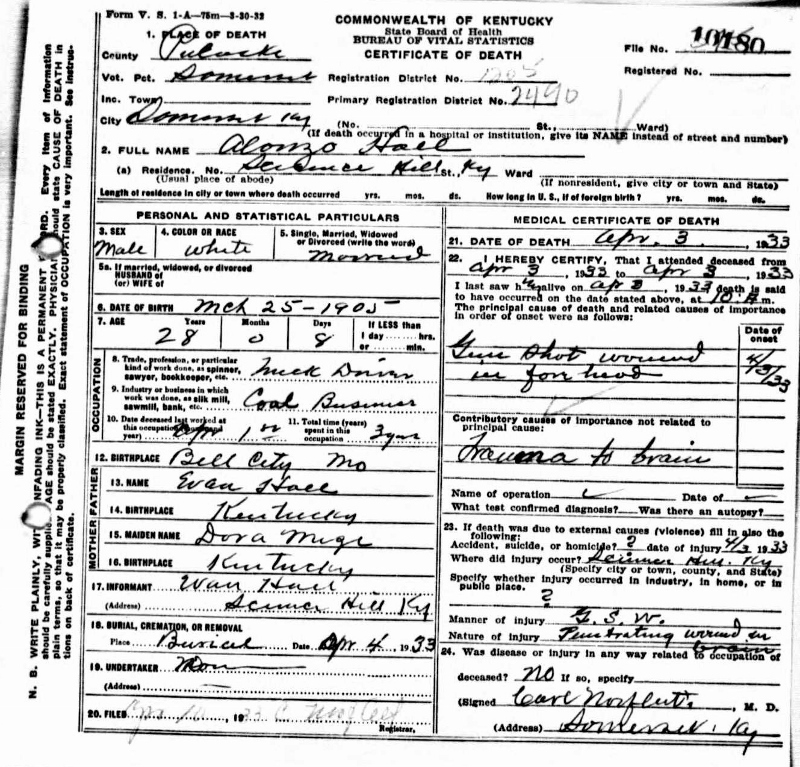 Form V. S. 1-A—75m—3-30-32
COMMONWEALTH OF KENTUCKY
State Board of Health
BUREAU OF VITAL STATISTICS
CERTIFICATE OF DEATH
File No.
Registered No.
1. PLACE OF DEATH
County Pulaski
Vot. Pct. Somerset
Registration District No. 1205
Inc. Town
Primary Registration District No. 2490
City Somerset Ky
(No. St., Ward)
(If death occurred in a hospital or institution, give its NAME instead of street and number)
2. FULL NAME Alonzo Hall
(a) Residence. No. Science Hill St., Ky Ward
(Usual place of abode)
(If nonresident, give city or town and State)
Length of residence in city or town where death occurred yrs. mos. ds. How long in U. S., if of foreign birth? yrs. mos. ds.
PERSONAL AND STATISTICAL PARTICULARS
3. SEX
Male
4. COLOR OR RACE
White
5. Single, Married, Widowed
or Divorced (write the word)
Married
5a. If married, widowed, or divorced
HUSBAND of
(or) WIFE of
6. DATE OF BIRTH Mch 25-1905
7. AGE
Years
28
Months
0
Days
8
If LESS than
1 day hrs.
or min.
OCCUPATION
8. Trade, profession, or particular
kind of work done, as spinner,
sawyer, bookkeeper, etc. Truck Driver
9. Industry or business in which
work was done, as silk mill,
sawmill, bank, etc. Coal Business
10. Date deceased last worked at
this occupation (month and
year) Apr 1
11. Total time (years)
spent in this
occupation 3 yrs
12. BIRTHPLACE Bell City Mo
FATHER
13. NAME Evan Hall
14. BIRTHPLACE Kentucky
MOTHER
15. MAIDEN NAME Dora
16. BIRTHPLACE Kentucky
17. INFORMANT Hall
(Address) Science Hill Ky
18. BURIAL, CREMATION, OR REMOVAL
Place Burial Date Apr 4, 1933
19. UNDERTAKER
(Address)
20. FILED 1933
Registrar.
MEDICAL CERTIFICATE OF DEATH
21. DATE OF DEATH Apr. 3, 1933
22. I HEREBY CERTIFY, That I attended deceased from
Apr 3, 1933 to Apr 3, 1933
I last saw h alive on Apr 3, 1933 death is said
to have occurred on the date stated above, at 10 A m.
The principal cause of death and related causes of importance
in order of onset were as follows:
Date of
onset
Gun shot wound
4/3/33
in forehead
Contributory causes of importance not related to
principal cause:
Trauma to brain
Name of operation Date of
What test confirmed diagnosis? Was there an autopsy?
23. If death was due to external causes (violence) fill in also the
following:
Accident, suicide, or homicide? ? date of injury 4/3 1933
Where did injury occur? Science Hill, Ky
(Specify city or town, county, and State)
Specify whether injury occurred in industry, in home, or in
public place.
?
Manner of injury G. S. W.
Nature of injury Penetrating wound in
brain
24. Was disease or injury in any way related to occupation of
deceased? NO If so, specify
(Signed Carl Norfleet, M. D.
(Address) Somerset. Ky
MARGIN RESERVED FOR BINDING